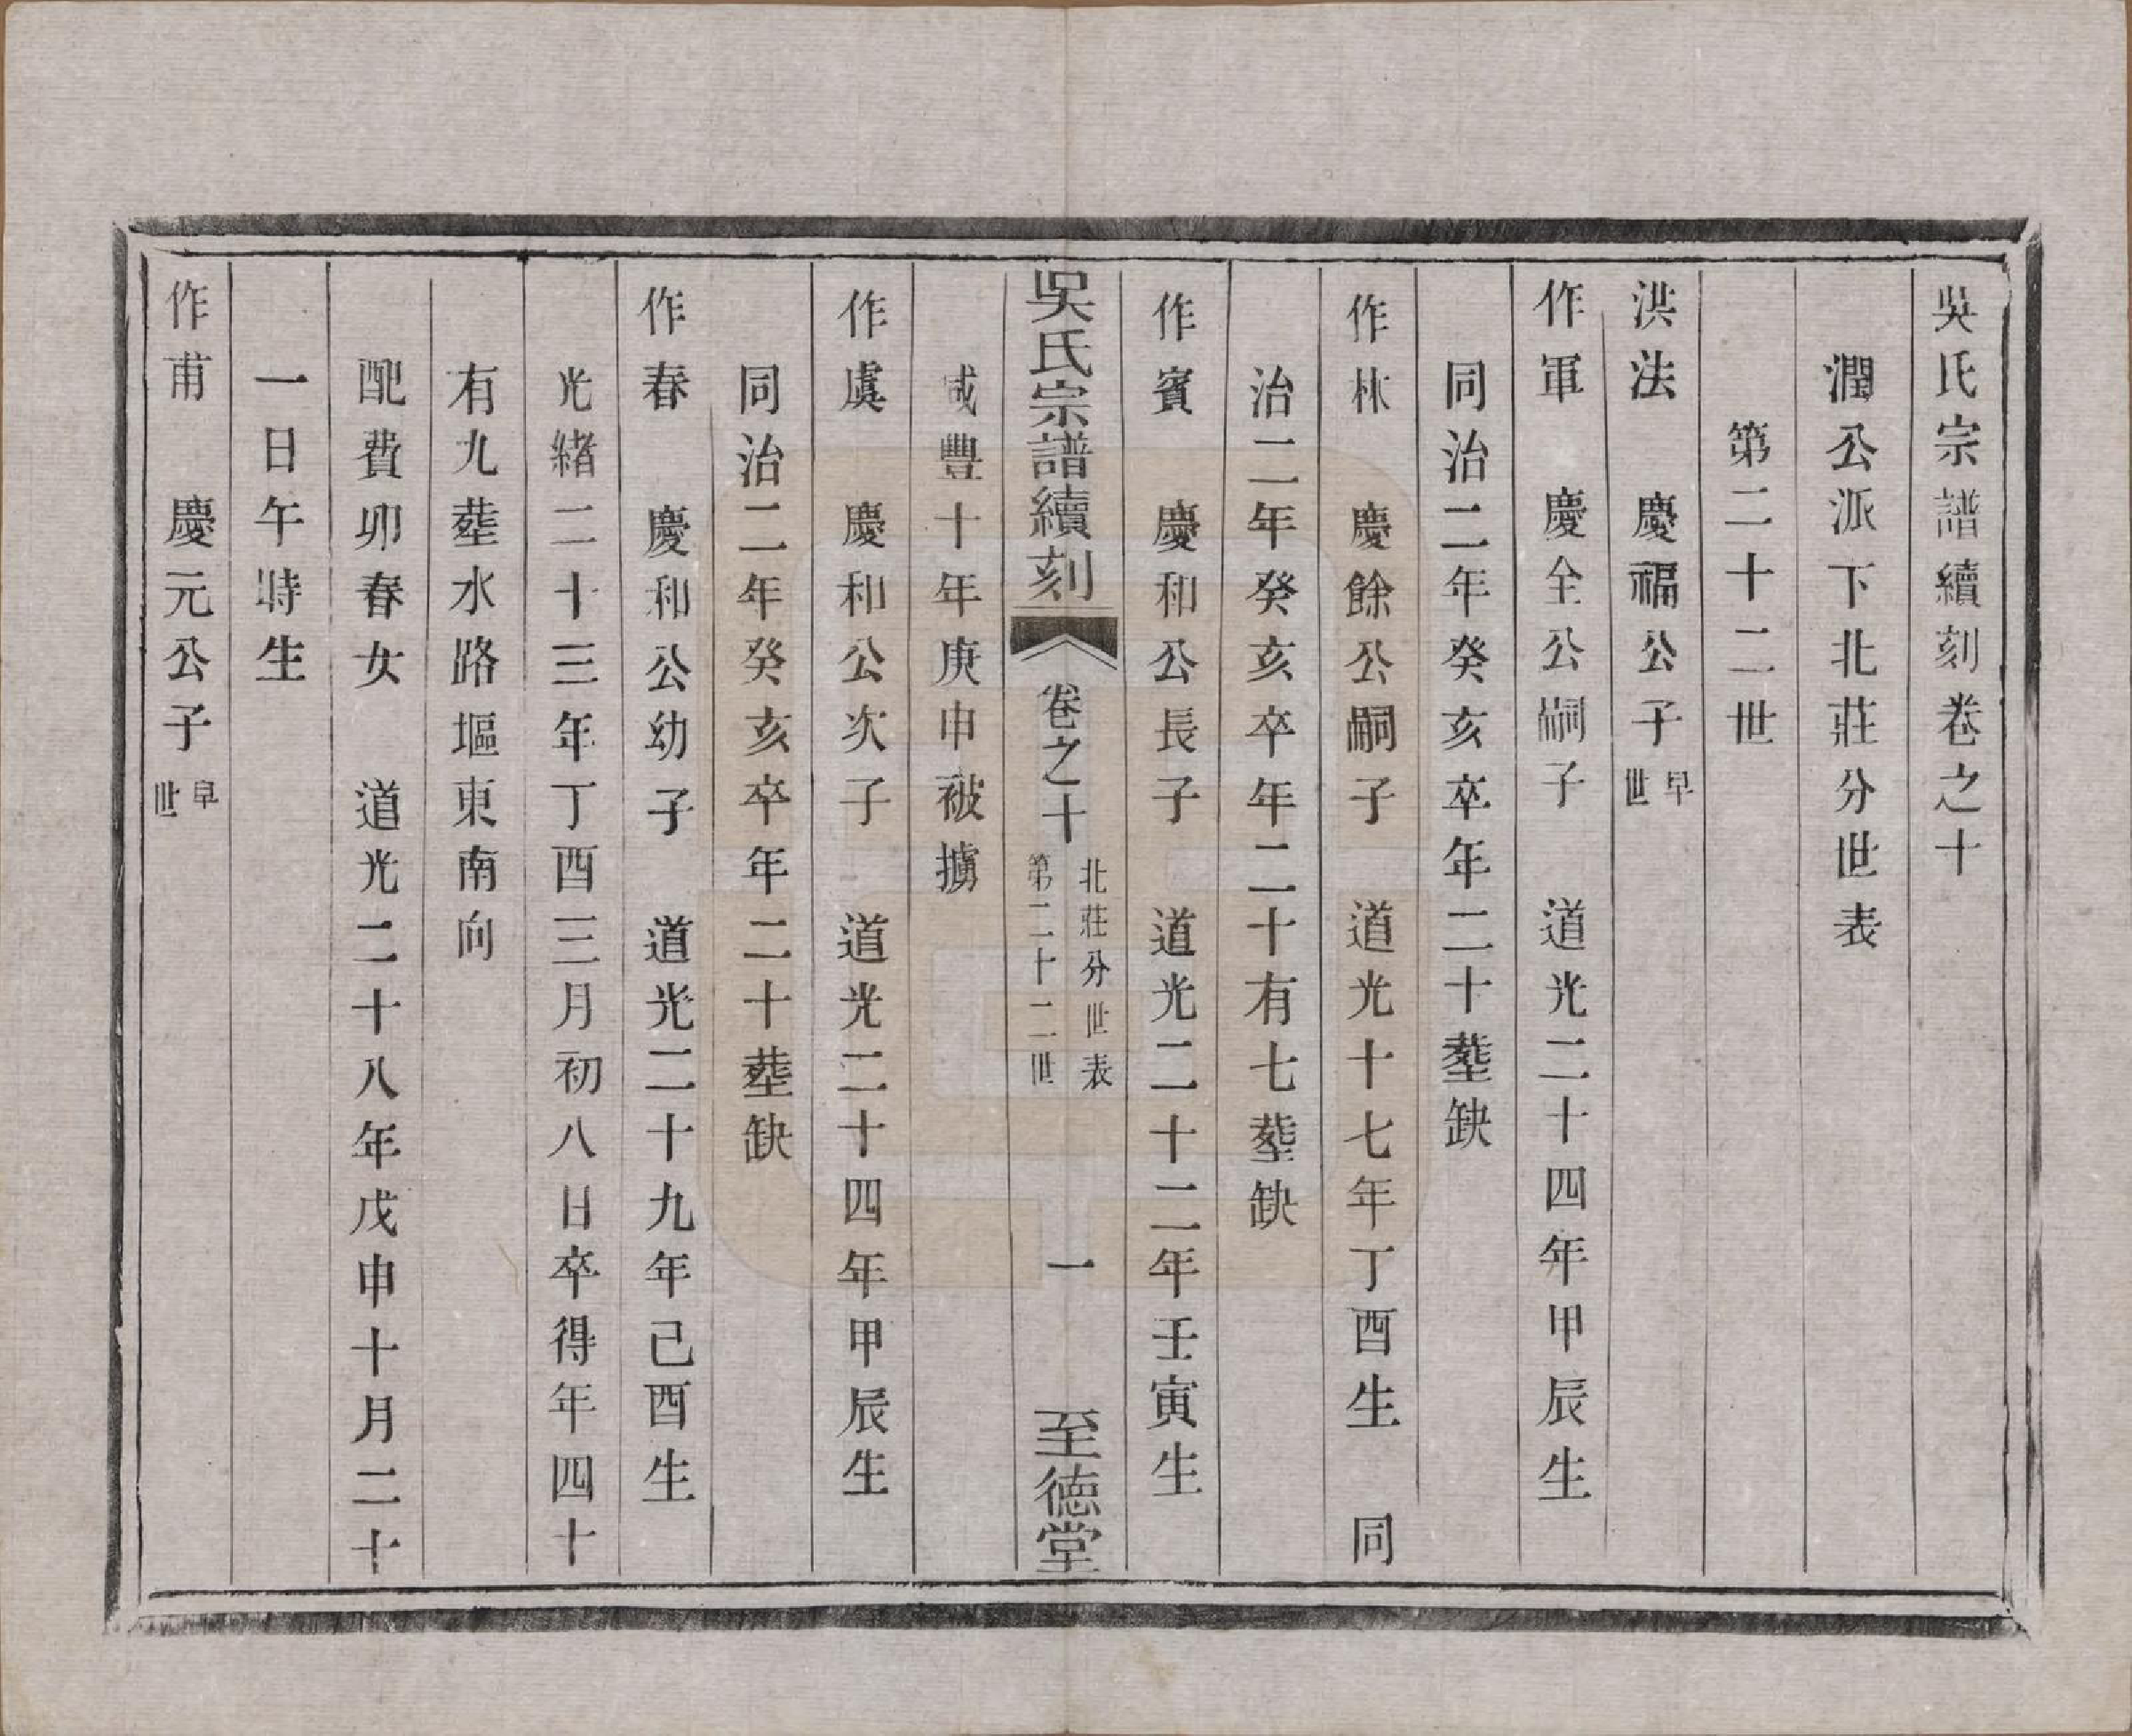 吳氏宗譜續刻卷之十
潤公派下北莊分世表
第二十二世
洪法　慶福公子早世
作軍　慶全公嗣子　道光二十四年甲辰生
同治二年癸亥卒年二十塟缺
作林　慶餘公嗣子　道光十七年丁酉生　同
治二年癸亥卒年二十有七塟缺
作賓　慶和公長子　道光二十二年壬寅生
咸豐十年庚申被擄
吳氏宗譜續刻　卷之十　北莊分世表　第二十二世　一　至德堂
作虞　慶和公次子　道光二十四年甲辰生
同治二年癸亥卒年二十塟缺
作春　慶和公幼子　道光二十九年己酉生
光緒二十三年丁酉三月初八日卒得年四十
有九塟水路堰東南向
配費卯春女　道光二十八年戊申十月二十
一日午時生
作甫　慶元公子早世